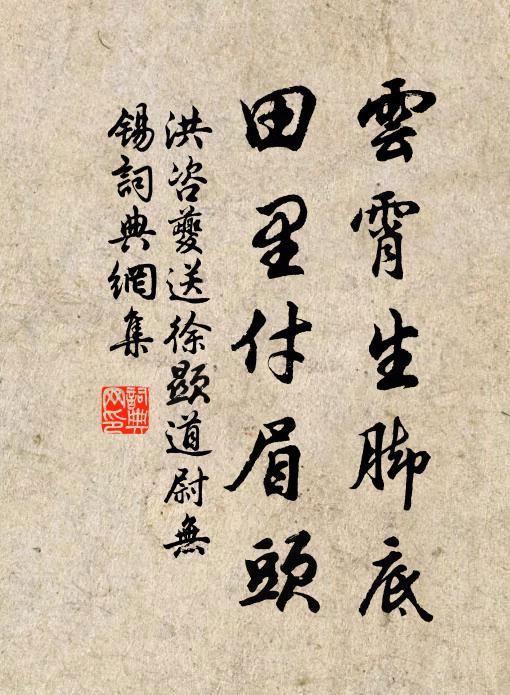 雲霄生脚底
田里付眉頭
洪咨夔送徐顯道尉無
錫詞典網集
詞典網印